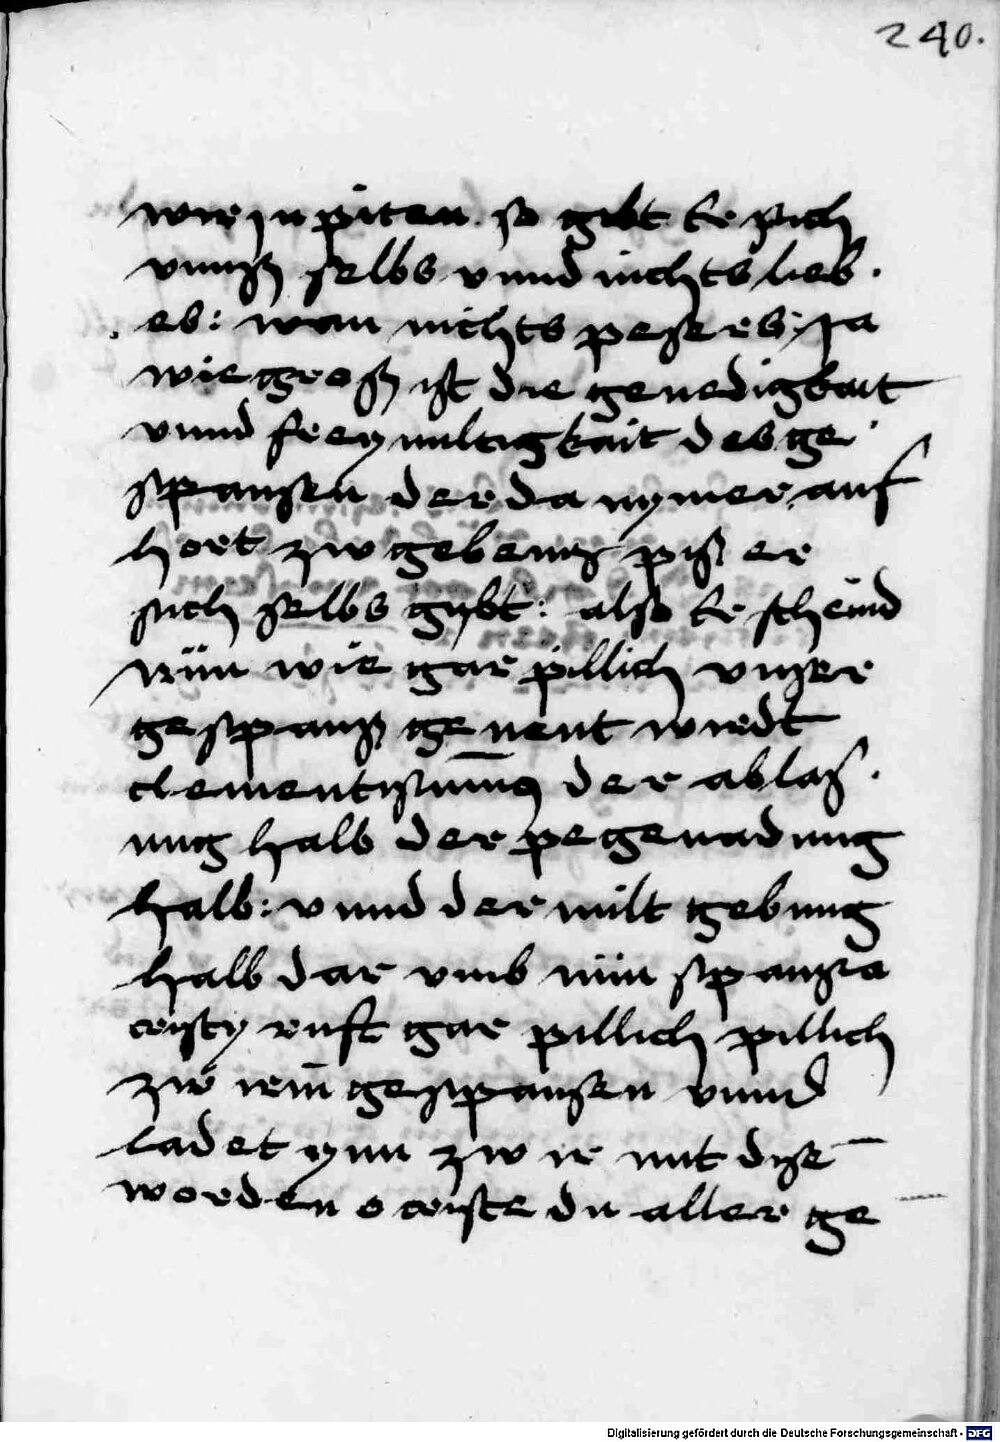 240.
wir jn piten. so gibt Er sich
vnnß selbs vnnd nichts lieb.
es: wan nichts pesers: ja
wie groß ist die genedigkait
vnnd freymiltigkait des ge
sponsen der da nymer auf
hort zw gebenn piß er
sich selbs gybt: also Er scheind
nün wie gar pillich vnser
gesponß genent wirdt
clementissimus der ablaß.
ung halb der pegenadung
halb: vnnd der milt gebung
halb dar vmb nün sponsa
cristy ruft gar pillich pillich
zw irem gesponsen vnnd
ladet ynn zw ir mit disē
worden o criste du aller ge
Digitalisierung gefördert durch die Deutsche Forschungsgemeinschaft - DFG